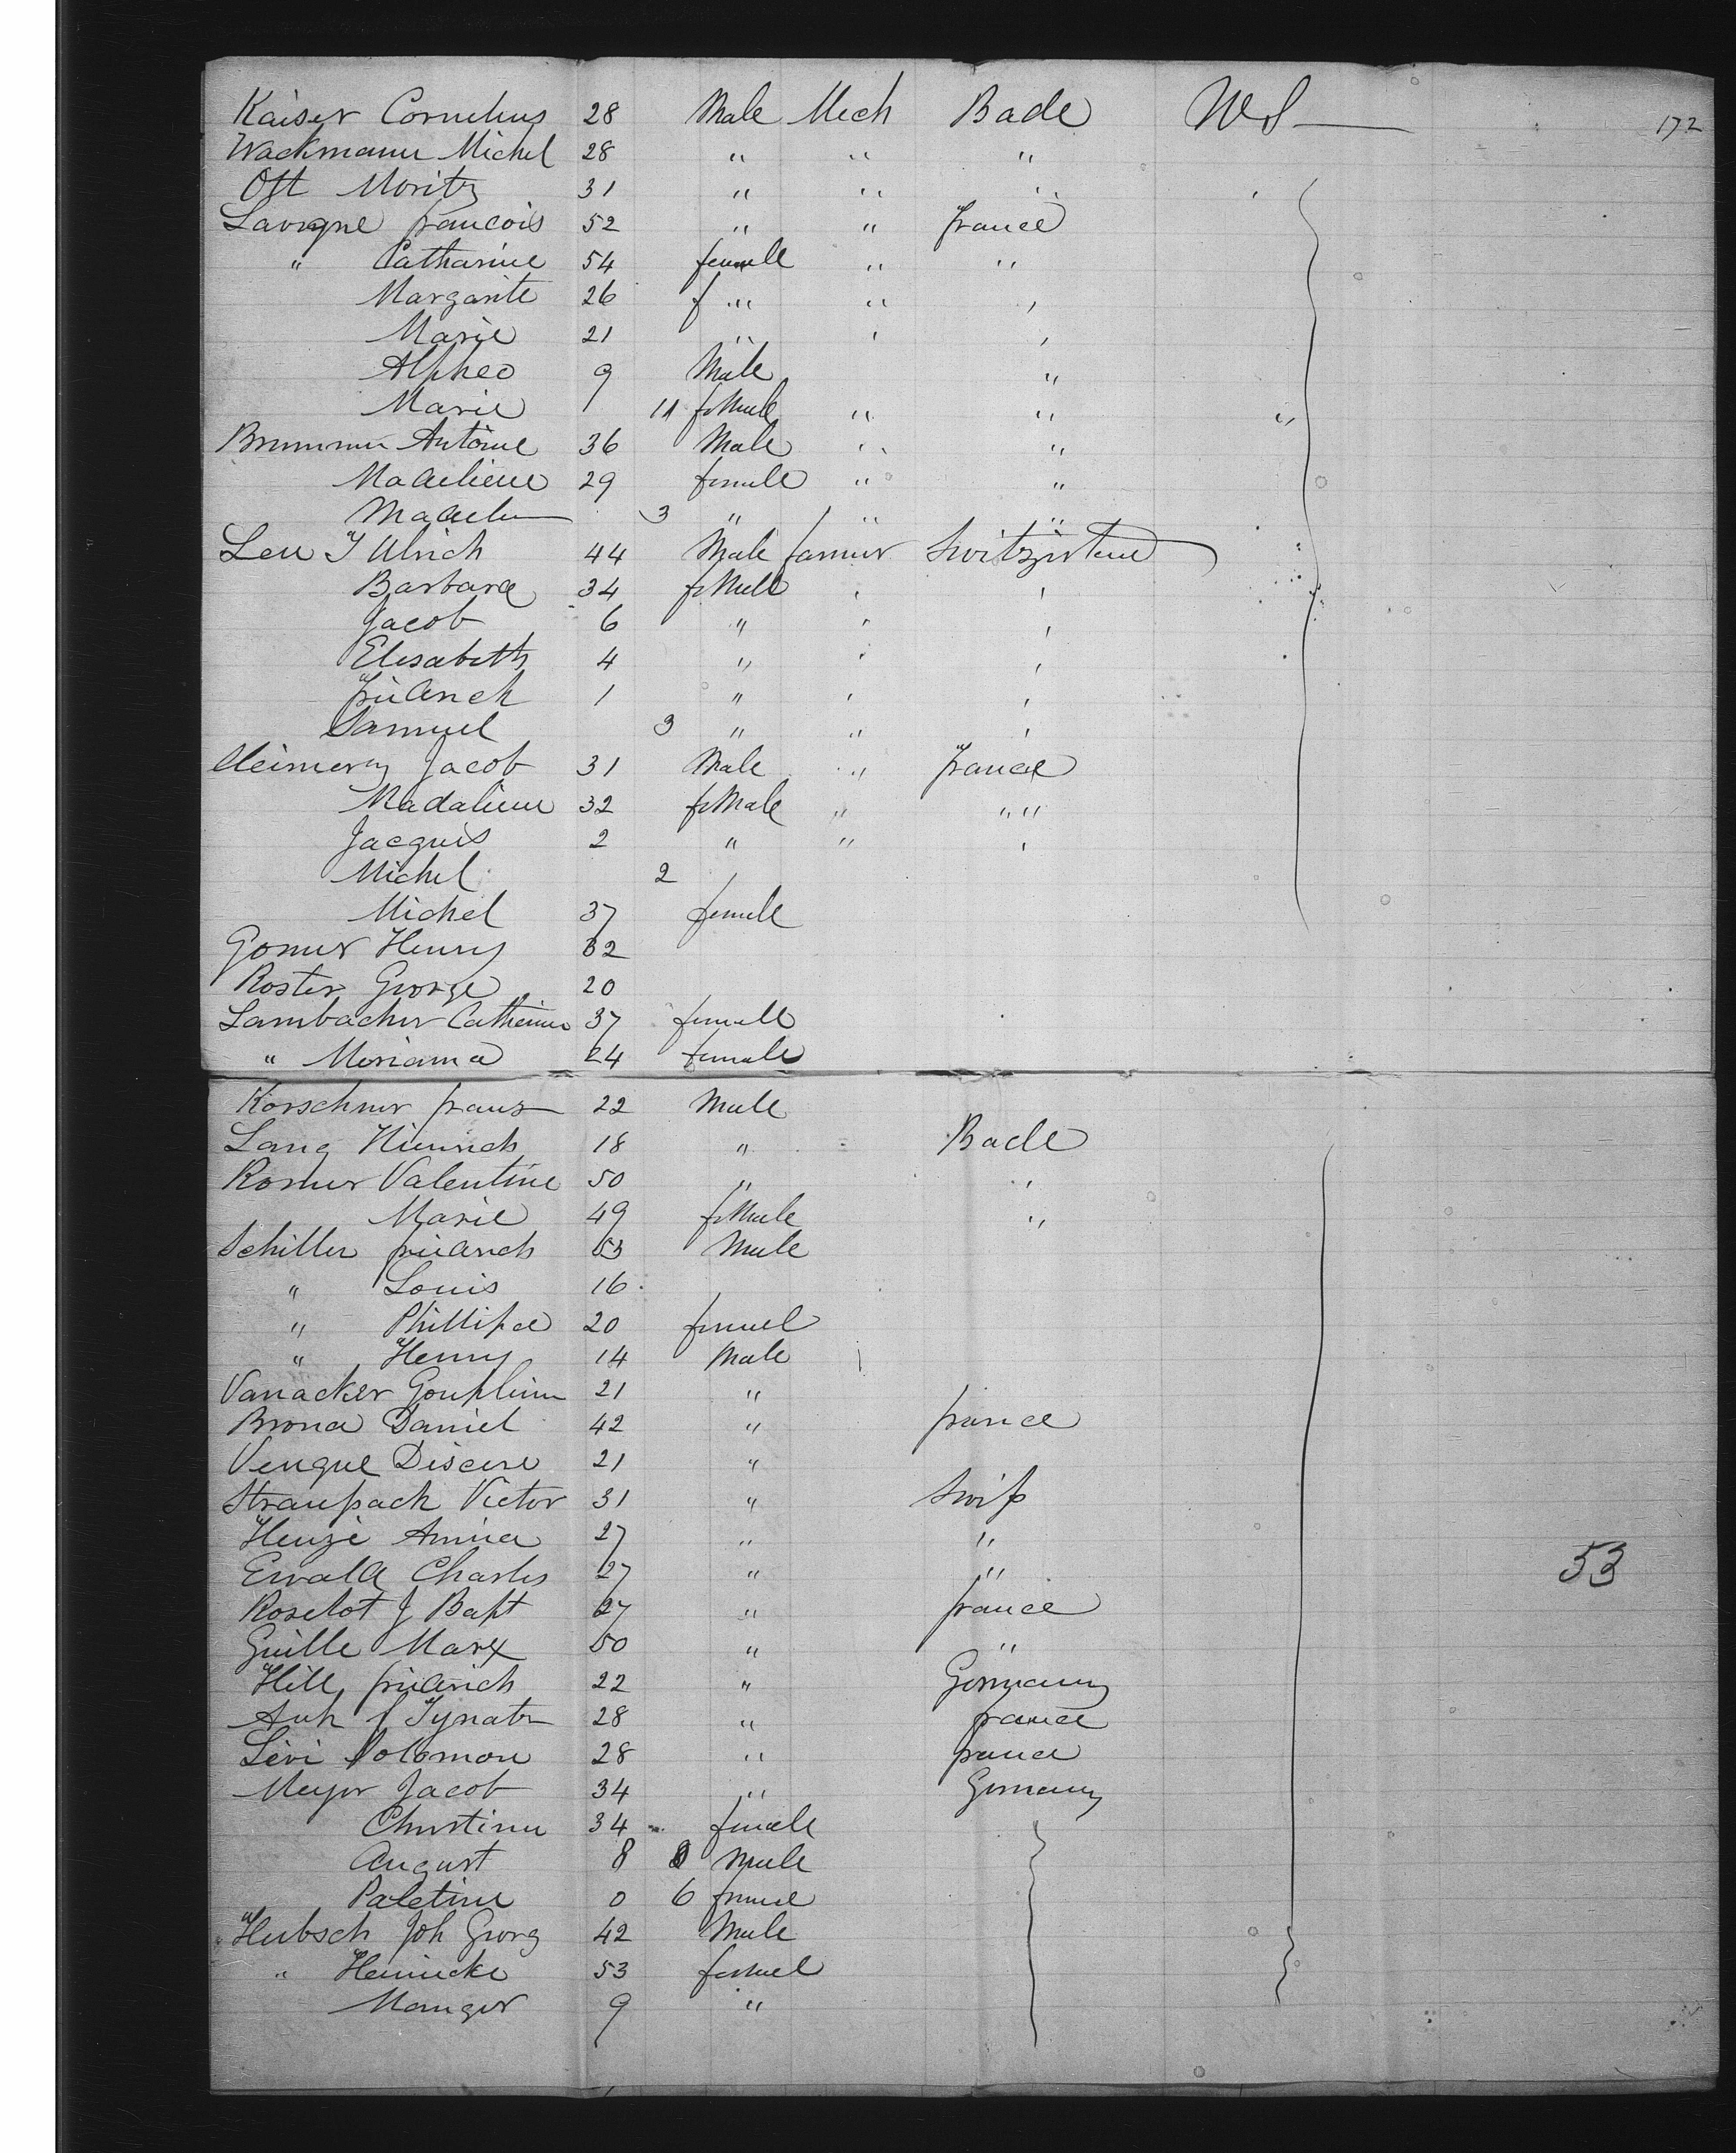 Kaiser Cornelius 28 Male Mech Bade W S — 172
Wackmann Michel 28 " " "
Ott Moritz 31 " " "
Lavigne francois 52 " " france
" Catharine 54 female " "
Margarite 26 f " " "
Marie 21 " " "
Alpheo 9 Male "
Marie 11 feMale " " "
Brummer Antoine 36 Male " "
Madeliene 29 female " "
3 " " "
Leu J Ulrich 44 Male farmer
Barbara 34 feMale " "
Jacob 6 " " "
Elisabeth 4 " " "
friedrich 1 " " "
Samuel 3 " " "
Jacob 31 Male " france
Madaliene 32 feMale " "
Jacques 2 " " "
Michel 2
Michel 37 female
Henry 32
Roster George 20
Lambacher Catherine 37 female
" 24 female
Korschner franz 22 Male
Lang Heinrich 18 " Bade
Romer Valentine 50 " "
Marie 49 feMale "
Schiller friedrich 53 Male
" Louis 16
" Phillipe 20 female
" Henry 14 Male
Vanacker 21 "
Daniel 42 " france
21 "
Victor 31 " Swiss
27 " "
Ewald Charles 27 " "
Roselot J Bapt 27 " france
Guille Marx 50 " "
Hill friedrich 22 " Germany
28 " france
Levi Solomon 28 " france
Meyer Jacob 34 " Germany
Christine 34 female
August 8 Male
0 6 female
Hubsch Joh Georg 42 Male
" 53 female
9 "
53